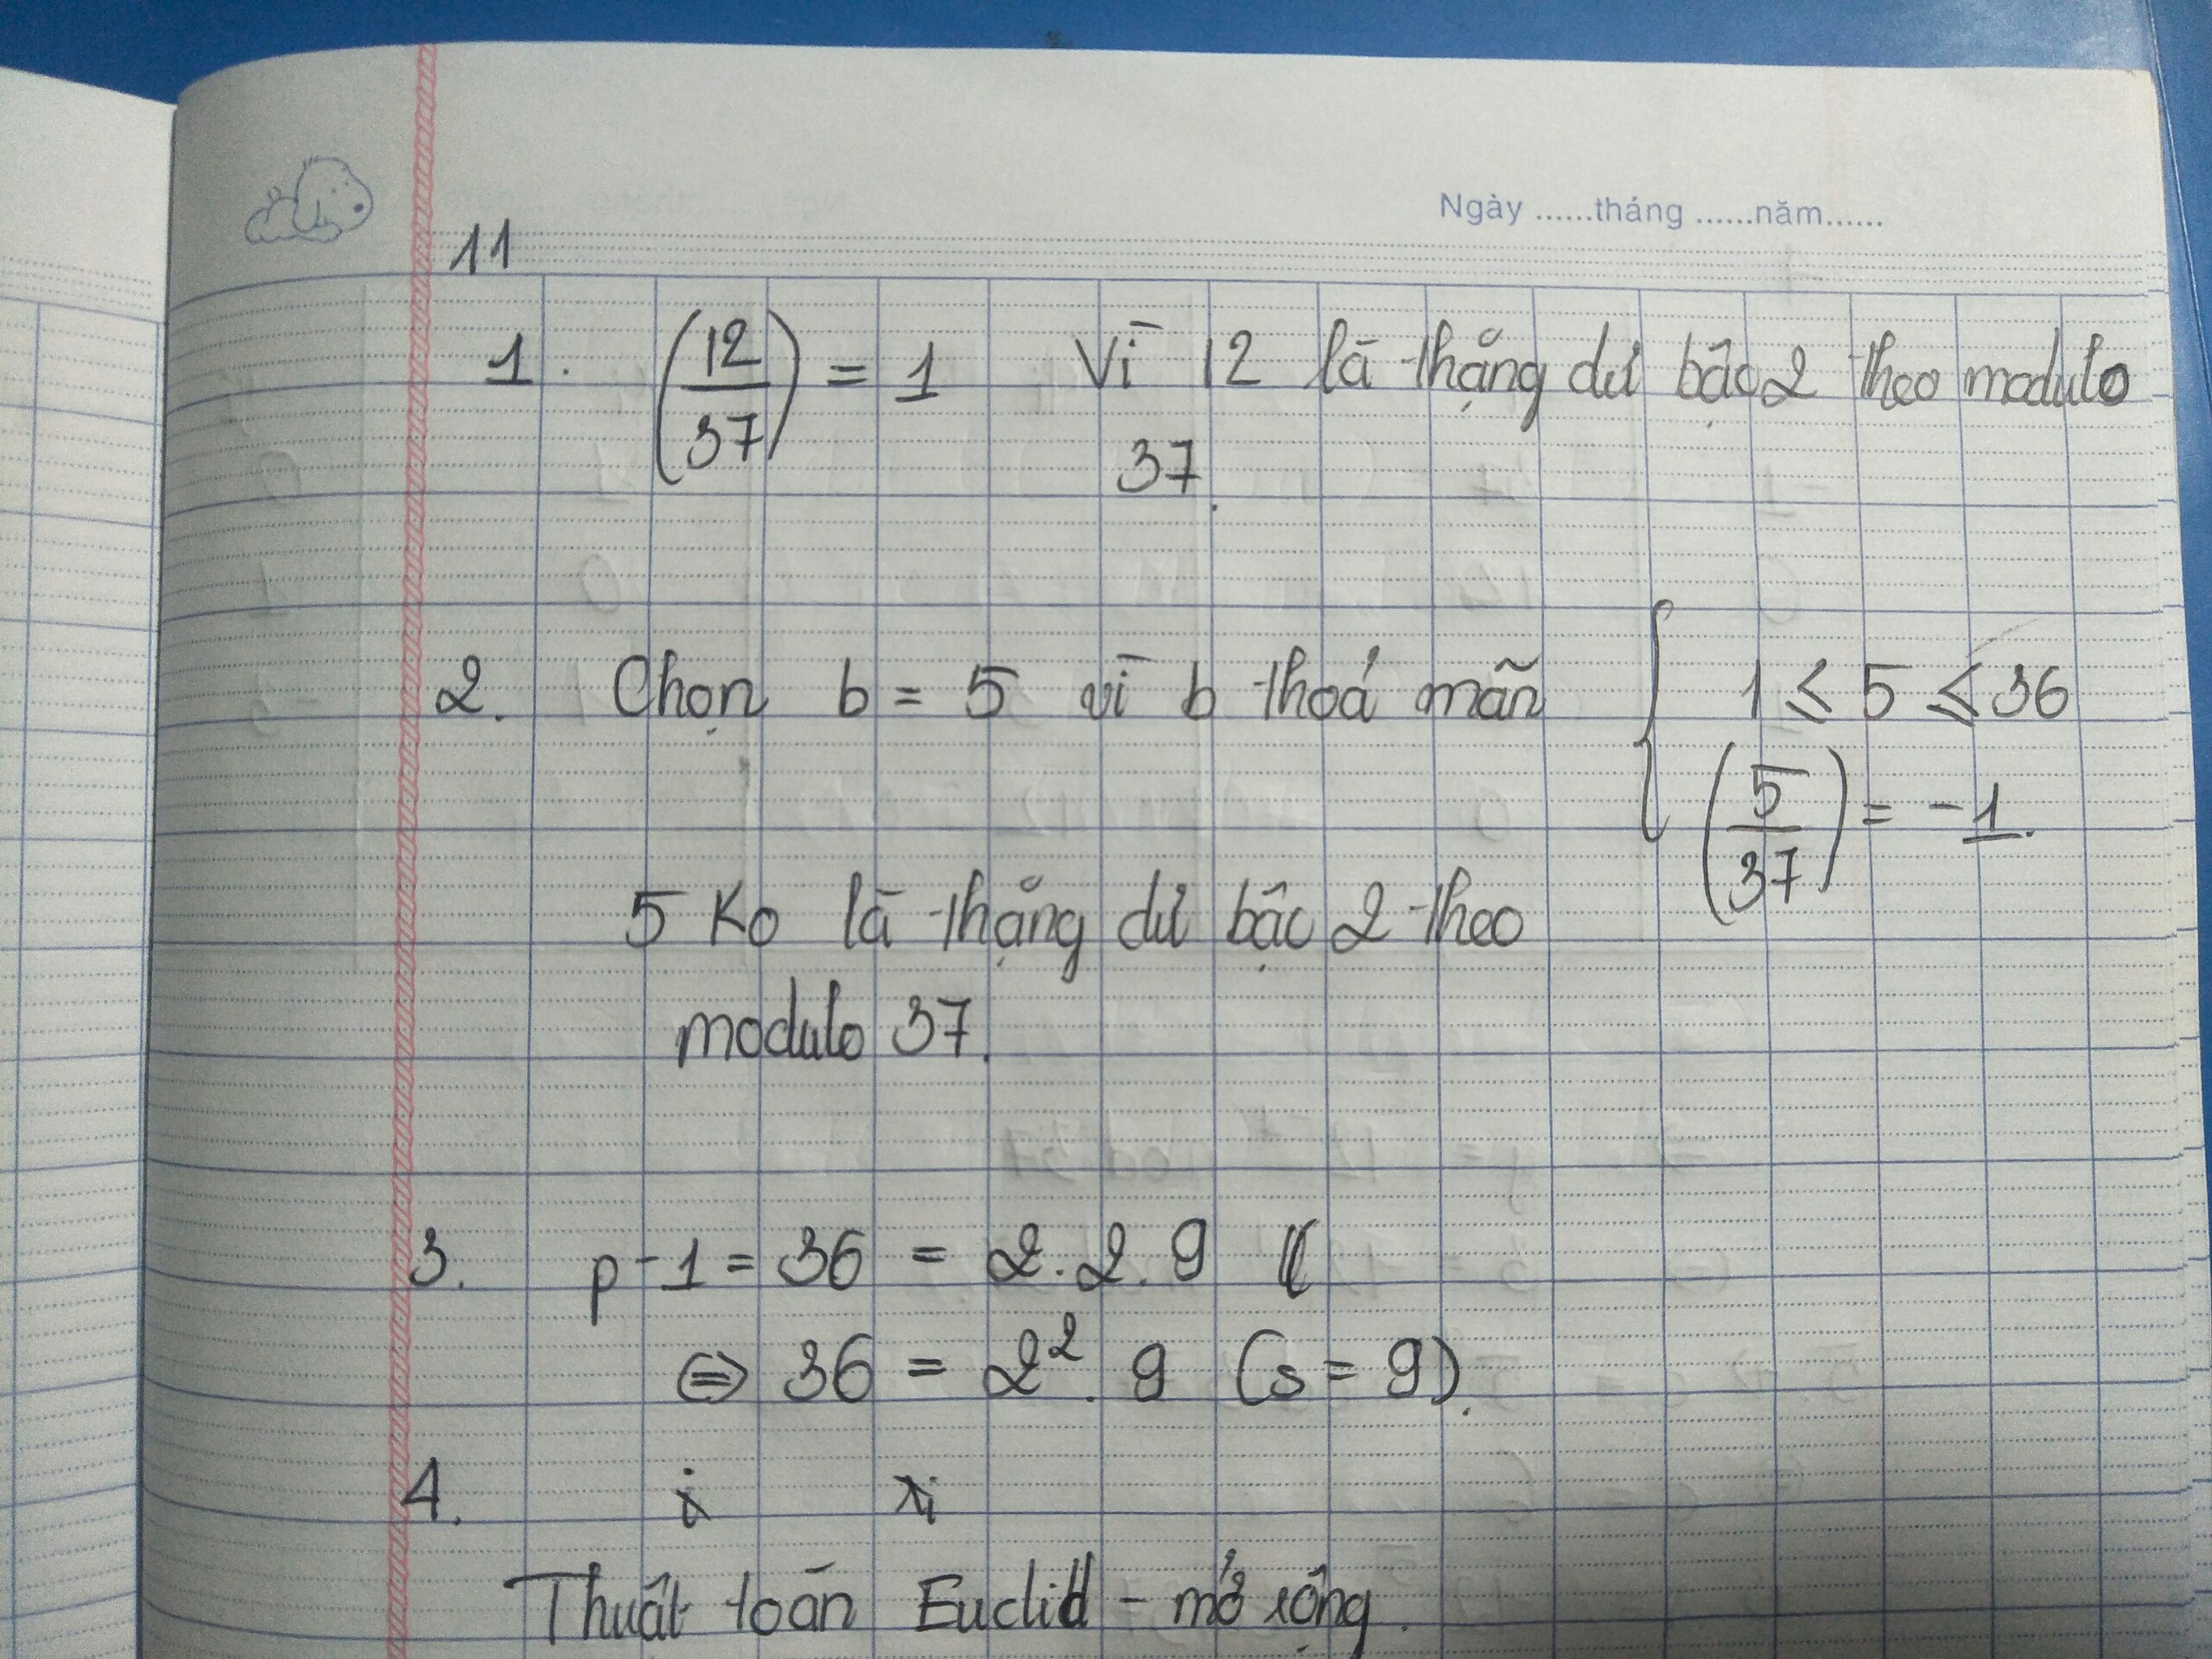 Ngày ......tháng ......năm......
11
1. (12/37) = 1 Vì 12 là thặng dư bậc 2 theo modulo
37.
2. Chọn b = 5 vì b thoả mãn { 1 ≤ 5 ≤ 36
(5/37) = -1.
5 Ko là thặng dư bậc 2 theo
modulo 37.
3. p-1 = 36 = 2.2.9
⇔ 36 = 2². 9 (s = 9).
4. i xi
Thuật toán Euclid - mở rộng.